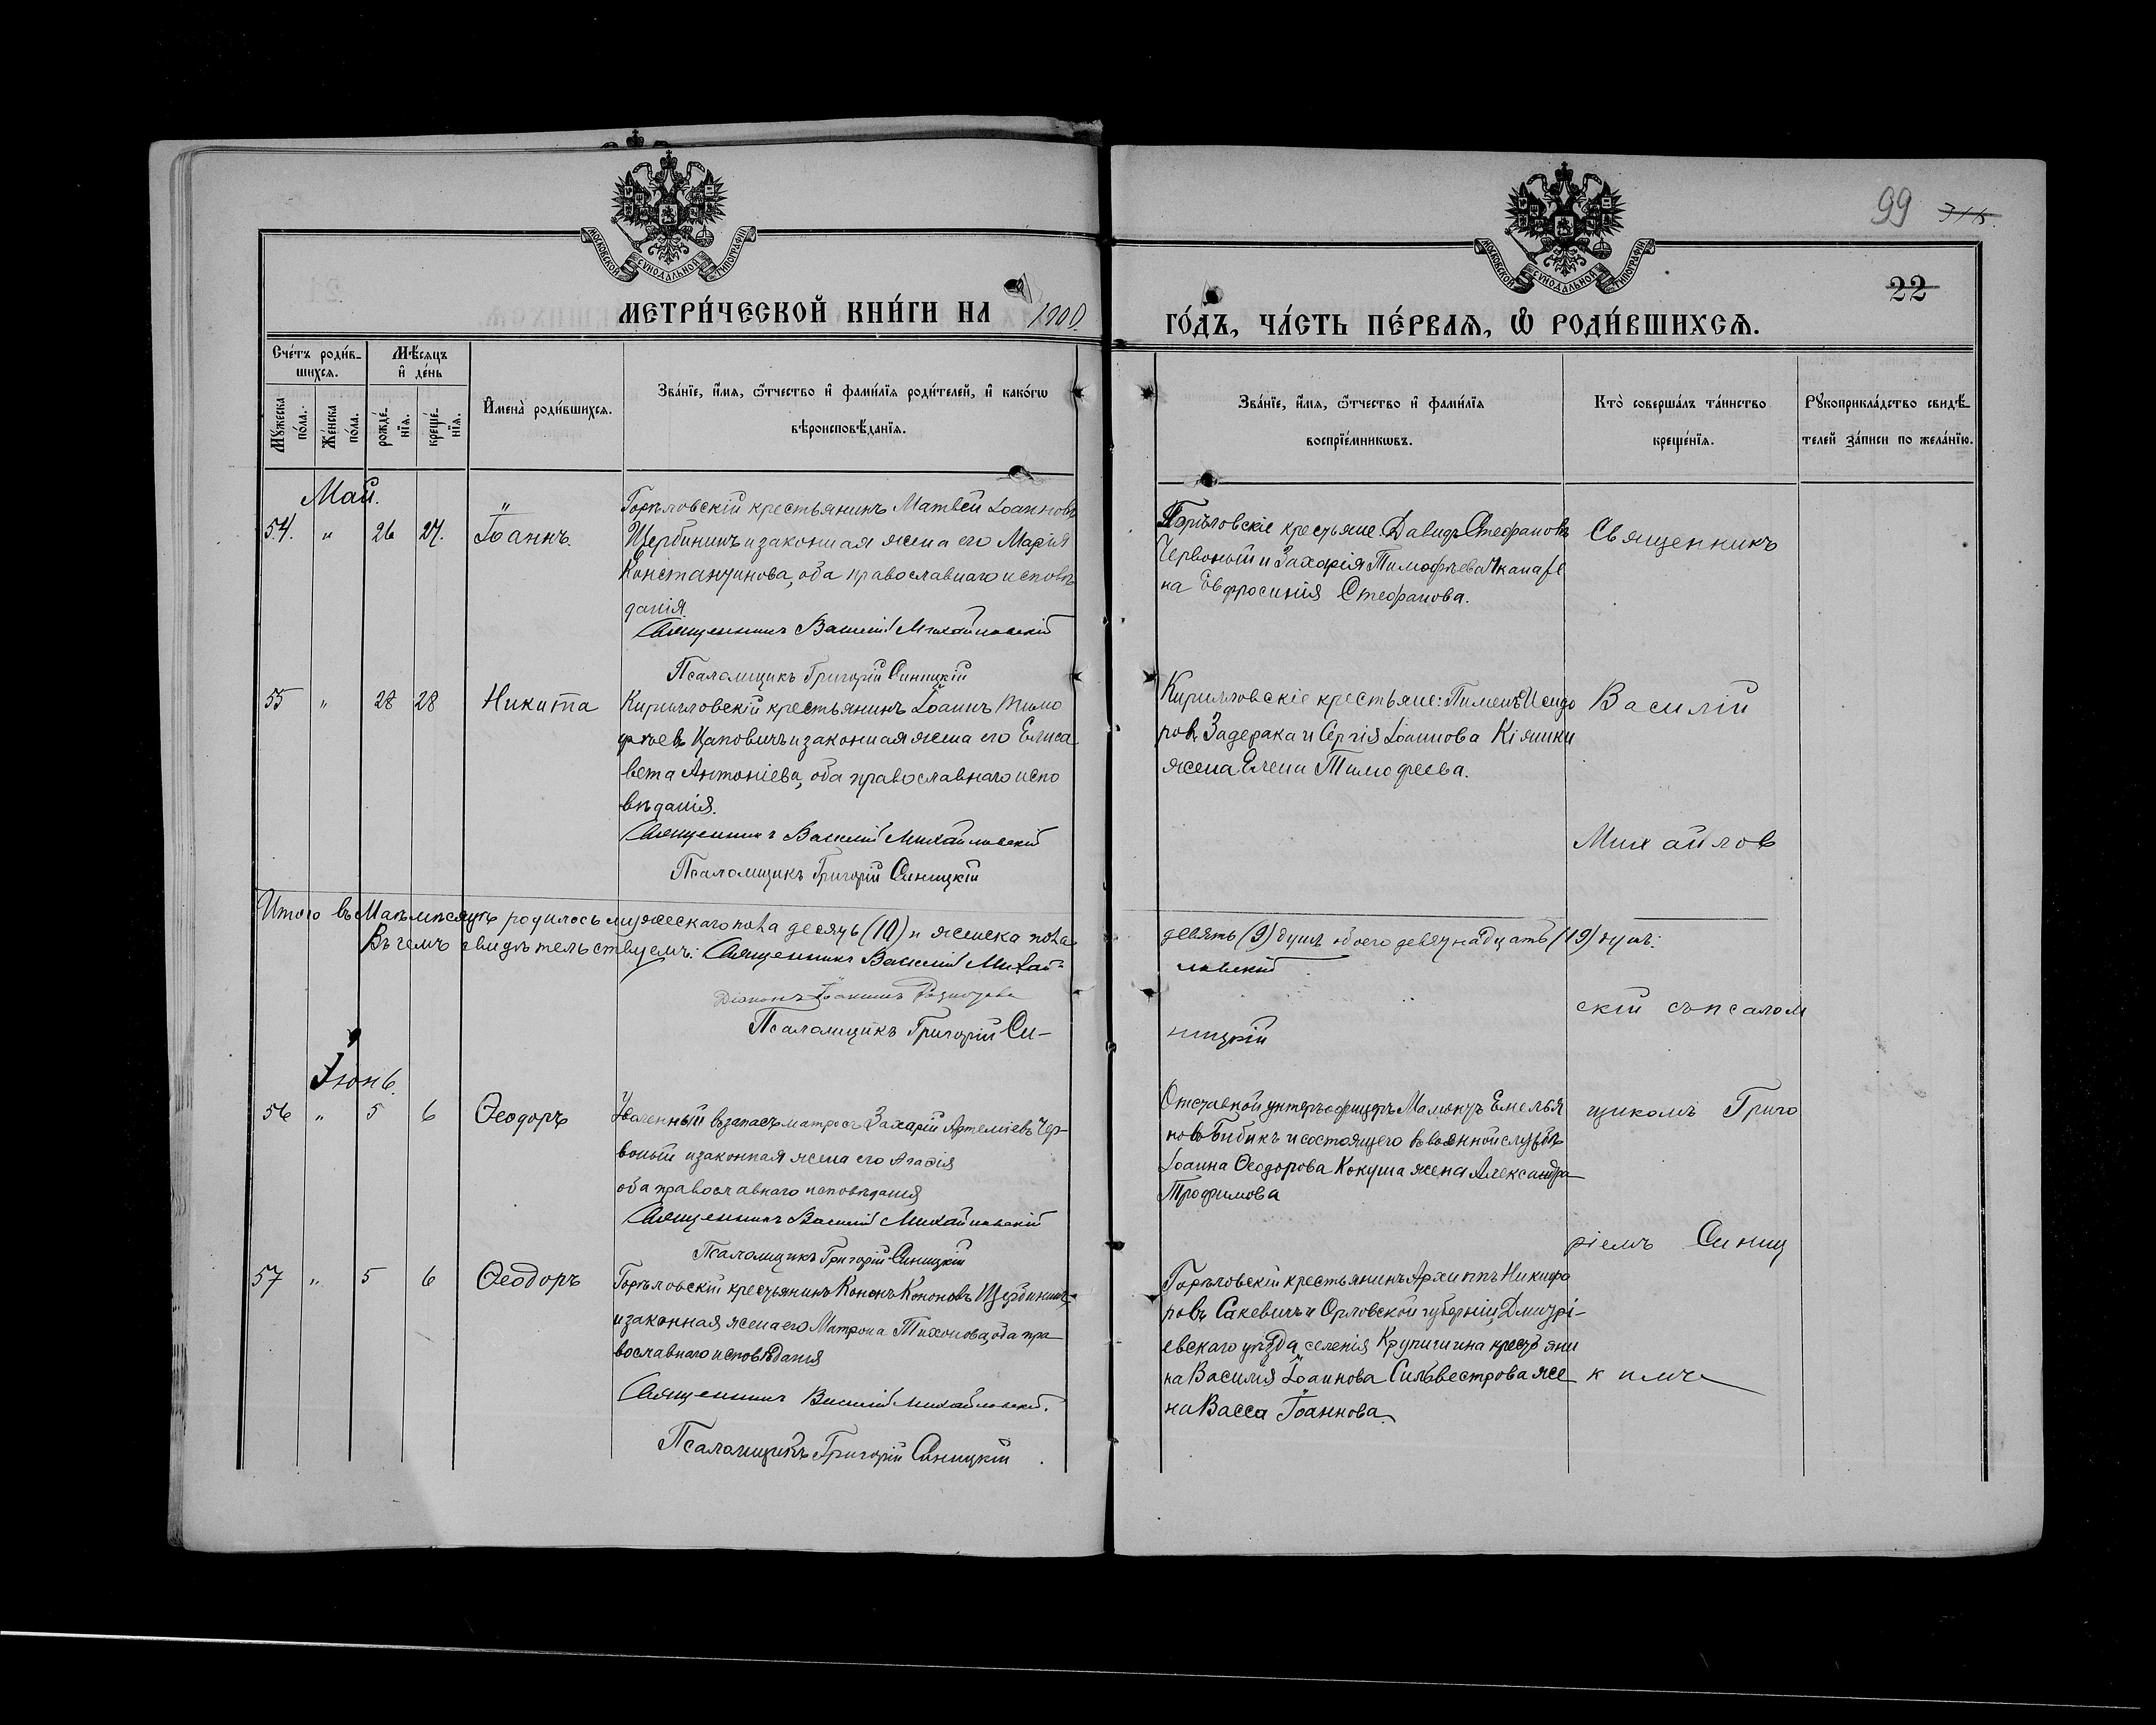 99
22
МОСКОВСКОЙ СУНОДАЛЬНОЙ ТИПОГРАФІИ
МОСКОВСКОЙ СУНОДАЛЬНОЙ ТИПОГРАФІИ
МЕТРИ́ЧЕСКОЙ КНИ́ГИ НА 1900.
ГО́ДЪ, ЧА́СТЬ ПЕ́РВАѦ, Ѡ РОДИ́ВШИХСѦ.
Сче́тъ роди́в-
шихсѧ.
Мѣ́сѧцъ
и҆ де́нь
Мꙋ́жеска
по́ла.
Же́нска
по́ла.
рожде́-
нїѧ.
креще́-
нїѧ.
И҆мена̀ роди́вшихсѧ.
Зва́нїе, и҆́мѧ, ѻ҆́тчество и҆ фами́лїѧ роди́телей, и҆ како́гѡ
вѣроисповѣ́данїѧ.
Зва́нїе, и҆́мѧ, ѻ҆́тчество и҆ фами́лїѧ
воспрїе́мникѡвъ.
Кто̀ соверша́лъ та́инство
креще́нїѧ.
Рꙋкоприкла́дство свидѣ́-
телей за́писи по жела́нїю.
Май.
54. " 26 27. Іоаннъ.
Горѣловскій крестьянинъ Матвей Іоанновъ
Щербининъ и законная жена его Марія
Константинова, оба православнаго исповѣ
данія
Священникъ Василій Михайловскій
Псаломщикъ Григорій Синицкій
Горѣловскіе крестьяне: Давидъ Стефановъ
Червоный и Захарія Тимофѣева
на Евфросинія Стефанова.
Священникъ
55 " 28 28 Никита
Кирилловскій крестьянинъ Іоаннъ Тимо
фѣевъ Цаповичъ и законная жена его Елиса
вета Антоніева, оба православнаго испо
вѣданія.
Священникъ Василій Михайловскій
Псаломщикъ Григорій Синицкій
Кирилловскіе крестьяне: Пименъ Исидо
ровъ Задерака и Сергія Іоаннова Кіяшки
жена Елена Тимофеева.
Василій
Михайлов
Итого въ Маѣ мѣсяцѣ родилось мужескаго пола десять (10) и женска пола
девять (9) душъ обоего девятнадцать (19) душъ.
Въ чемъ свидѣтельствуемъ: Священникъ Василій Михай-
ловскій
Діаконъ Іоакимъ
Псаломщикъ Григорій Си-
ницкій
скій съ псалом
Іюнь.
56 " 5 6 Ѳеодоръ
Уволенный въ запасъ матросъ Захарій Артеміевъ Чер-
воный и законная жена его Агафія
оба православнаго исповѣданія
Священникъ Василій Михайловскій
Псаломщикъ Григорій Синицкій
Отставной унтеръ-офицеръ Мамонтъ Емелья
новъ Бибикъ и состоящего въ военной службѣ
Іоанна Ѳеодорова Кокуша жена Александра
Трофимова
щикомъ Григо
ріемъ Синиц
57 " 5 6 Ѳеодоръ
Горѣловскій крестьянинъ Кононъ Кононовъ Щербининъ
и законная жена его Матрона Тихонова, оба пра
вославнаго исповѣданія
Священникъ Василій Михайловскій.
Псаломщикъ Григорій Синицкій
Горѣловскій крестьянинъ Архиппъ Никифо
ровъ Сакевичъ и Орловской губерніи, Дмитрі-
евскаго уѣзда, селенія Крупишина крестьяни
на Василія Іоаннова Сильвестрова же
на Васса Іоаннова.
кимъ